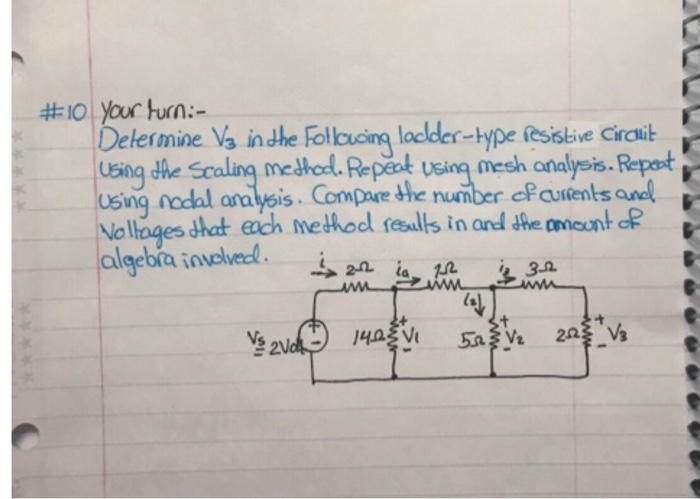 #10 Your turn:-
Determine V3 in the Following ladder-type resistive circuit
Using the Scaling method. Repeat using mesh analysis. Repeat
using nodal analysis. Compare the number of currents and
Voltages that each method results in and the amount of
algebra involved.
i 2Ω ia 1Ω i3 3Ω
i2
Vs = 2Volt 14Ω + V1 - 5Ω + V2 - 2Ω + V3 -